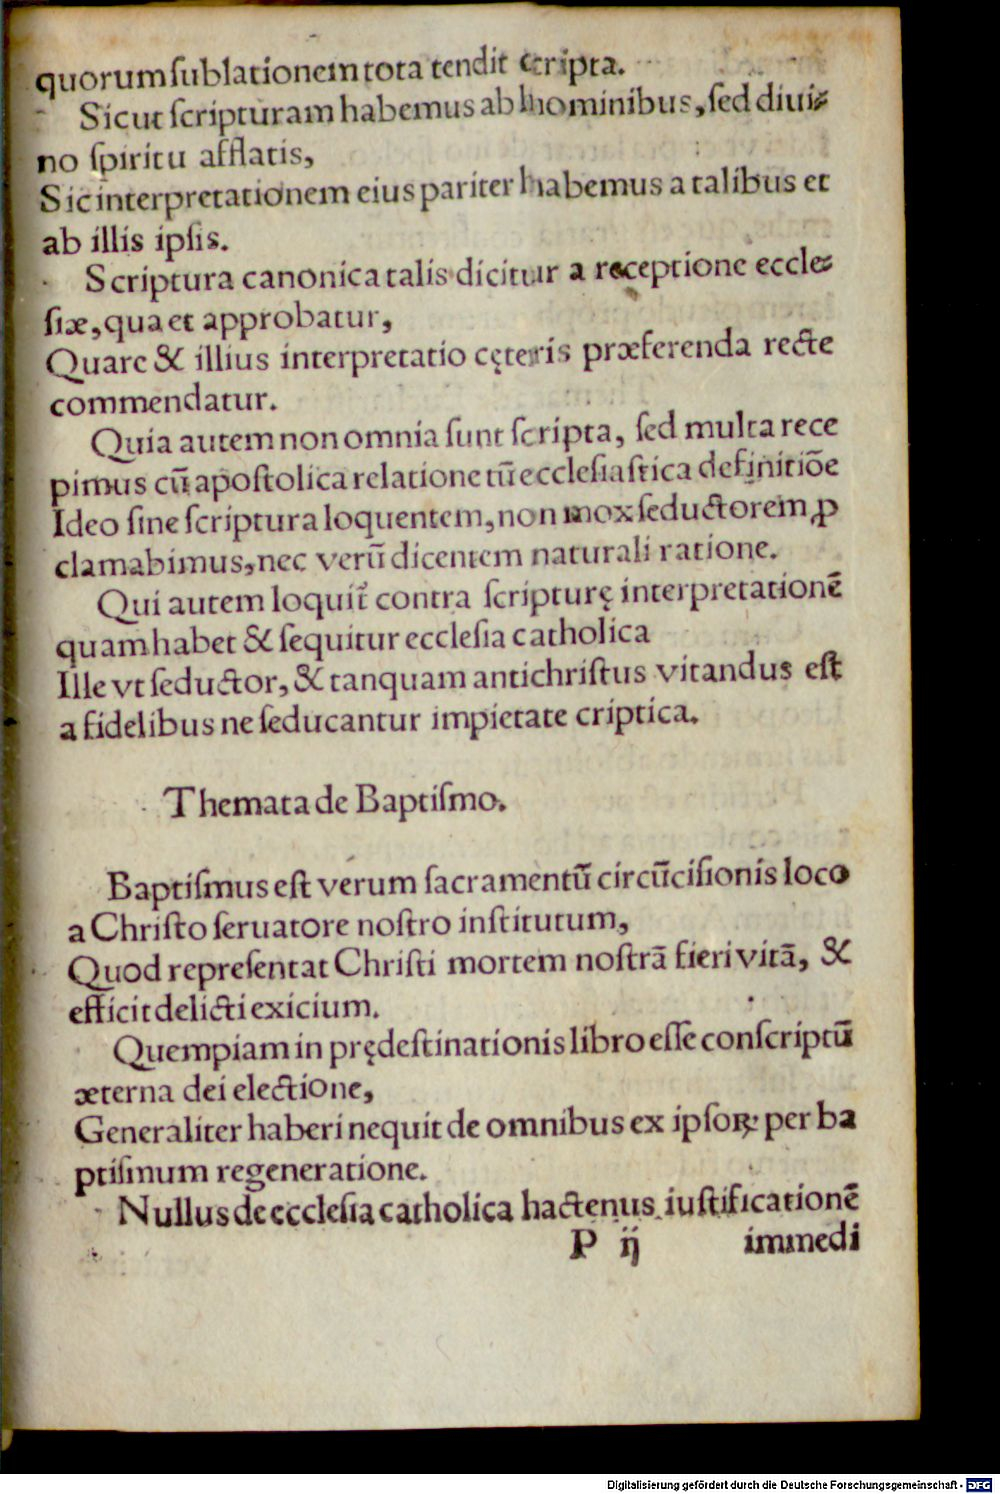 quorum ſublationem tota tendit ſcripta.
Sicut ſcripturam habemus ab hominibus, ſed diui⸗
no ſpiritu afflatis,
Sic interpretationem eius pariter habemus a talibus et
ab illis ipſis.
Scriptura canonica talis dicitur a receptione eccle⸗
ſiæ, qua et approbatur,
Quare & illius interpretatio cęteris præferenda recte
commendatur.
Quia autem non omnia ſunt ſcripta, ſed multa rece
pimus cū apoſtolica relatione tū eccleſiaſtica definitiōe
Ideo ſine ſcriptura loquentem, non mox ſeductorem ꝓ
clamabimus, nec verū dicentem naturali ratione.
Qui autem loquit᷑ contra ſcripturę interpretationē
quam habet & ſequitur eccleſia catholica
Ille vt ſeductor, & tanquam antichriſtus vitandus eſt
a fidelibus ne ſeducantur impietate criptica.
Themata de Baptiſmo.
Baptiſmus eſt verum ſacramentū circūciſionis loco
a Chriſto ſeruatore noſtro inſtitutum,
Quod repreſentat Chriſti mortem noſtrā fieri vitā, &
efficit delicti exicium.
Quempiam in prędeſtinationis libro eſſe conſcriptū
æterna dei electione,
Generaliter haberi nequit de omnibus ex ipſoꝝ per ba
ptiſmum regeneratione.
Nullus de eccleſia catholica hactenus iuſtificationē
P ij immedi
Digitalisierung gefördert durch die Deutsche Forschungsgemeinschaft - DFG